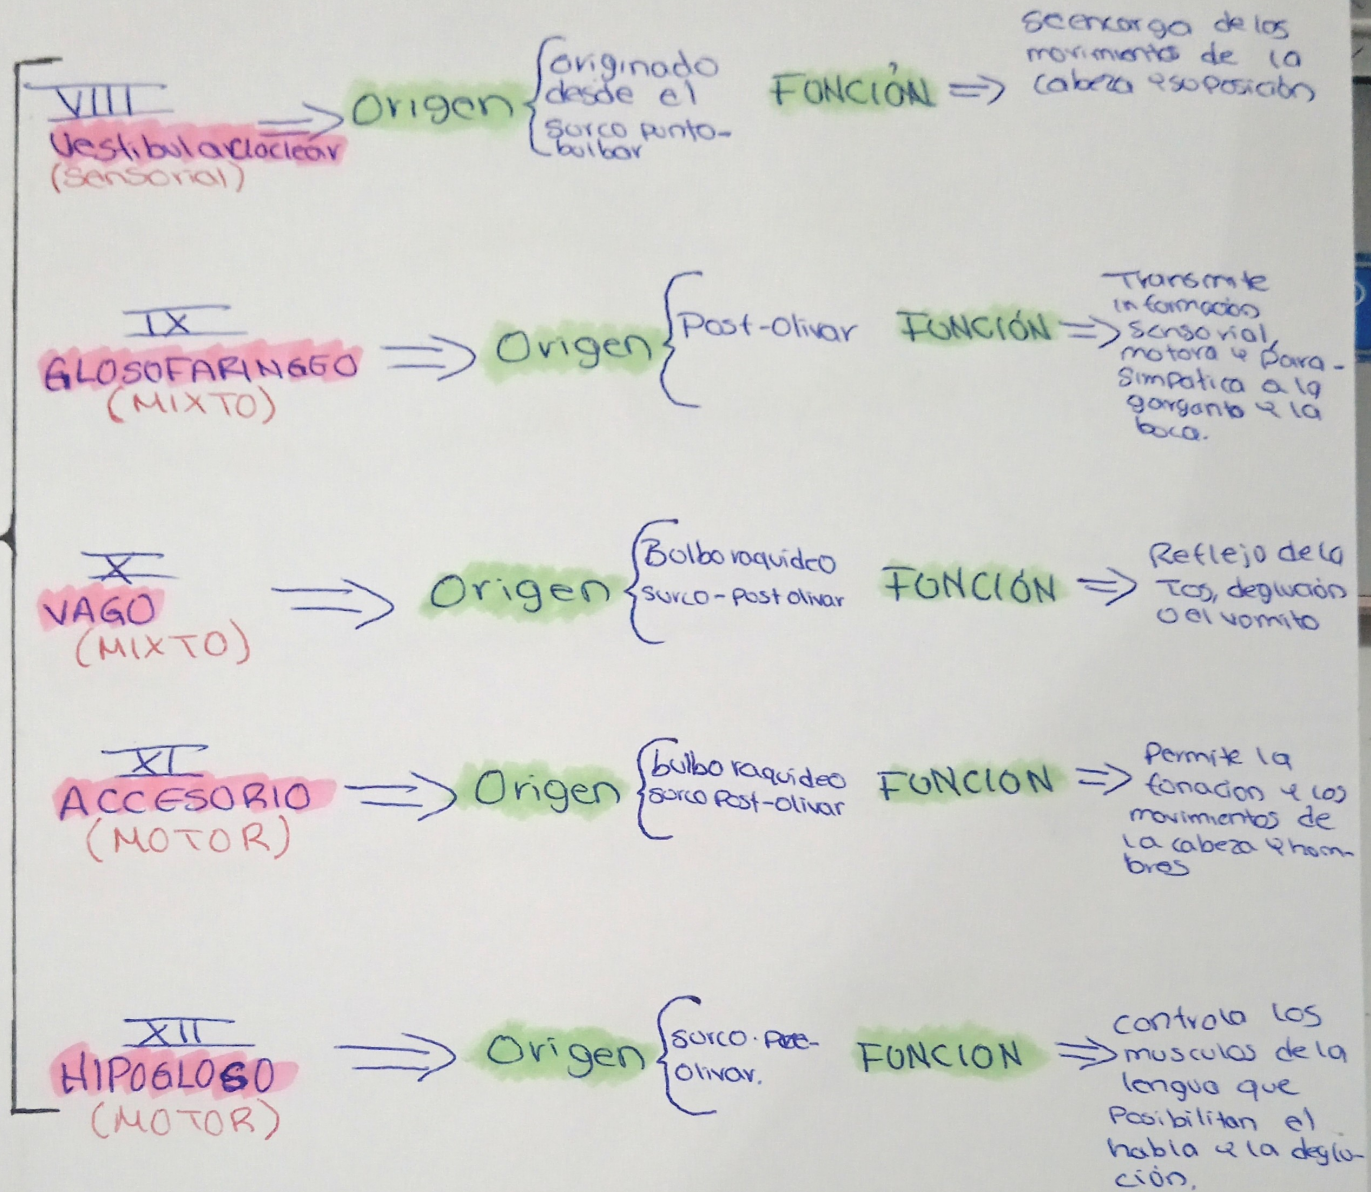 VIII
Vestibulacloclear
(sensorial)
Origen
originado
desde el
surco punto-
bulbar
FUNCIÓN
se encarga de los
movimientos de la
cabeza y su posición
IX
GLOSOFARINGEO
(MIXTO)
Origen
Post-Olivar
FUNCIÓN
Transmite
información
sensorial,
motora y para-
simpatica a la
garganta y la
boca.
X
VAGO
(MIXTO)
Origen
Bulbo raquideo
surco-post olivar
FUNCIÓN
Reflejo de la
Tos, deglución
o el vomito
XI
ACCESORIO
(MOTOR)
Origen
bulbo raquideo
surco Post-olivar
FUNCION
Permite la
fonacion y los
movimientos de
la cabeza y hom-
bros
XII
HIPOGLOSO
(MOTOR)
Origen
surco. Pre-
olivar.
FUNCION
controla los
musculos de la
lengua que
Posibilitan el
habla y la deglu-
ción.